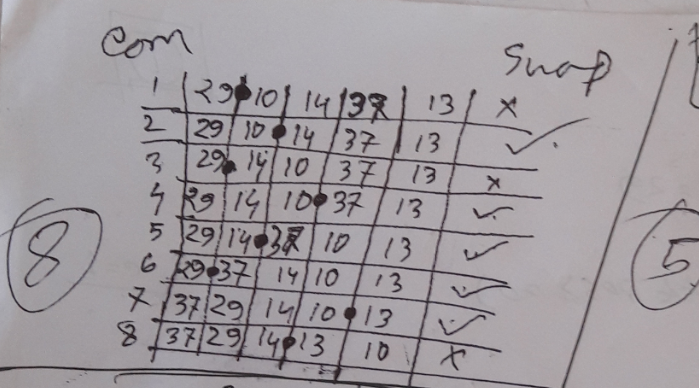 Com Swap
1 29 10 14 37 13 ×
2 29 10 14 37 13 ✓
3 29 14 10 37 13 ×
4 29 14 10 37 13 ✓
5 29 14 37 10 13 ✓
6 29 37 14 10 13 ✓
7 37 29 14 10 13 ✓
8 37 29 14 13 10 ×
8
5